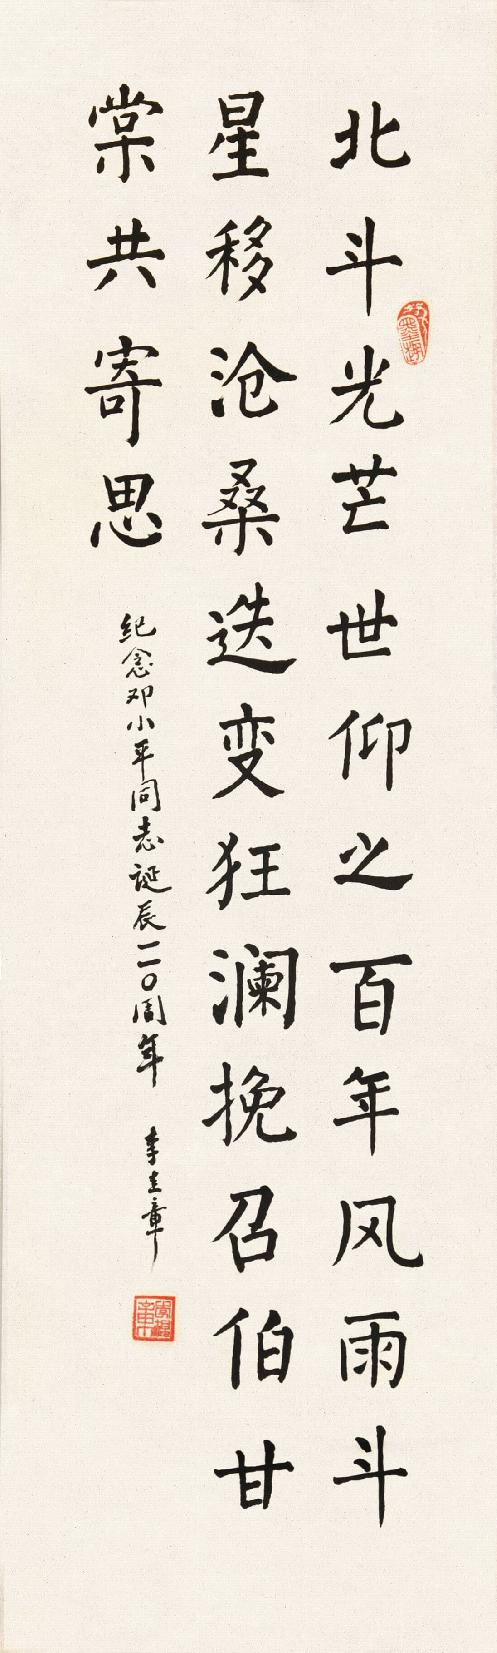 北斗光芒世仰之百年风雨斗
星移沧桑迭变狂澜挽召伯甘
棠共寄思
纪念邓小平同志诞辰一一〇周年
李立章